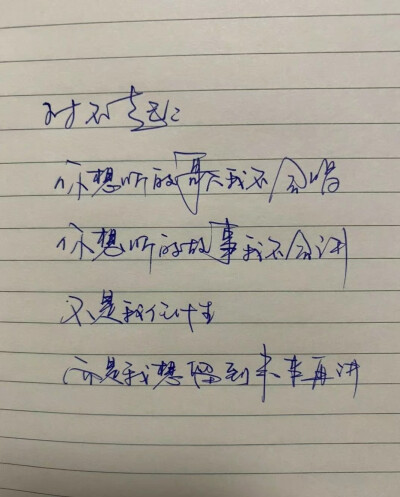 对不起
你想听的歌我不会唱
你想听的故事我不会讲
不是我
而是我想留到未来再讲